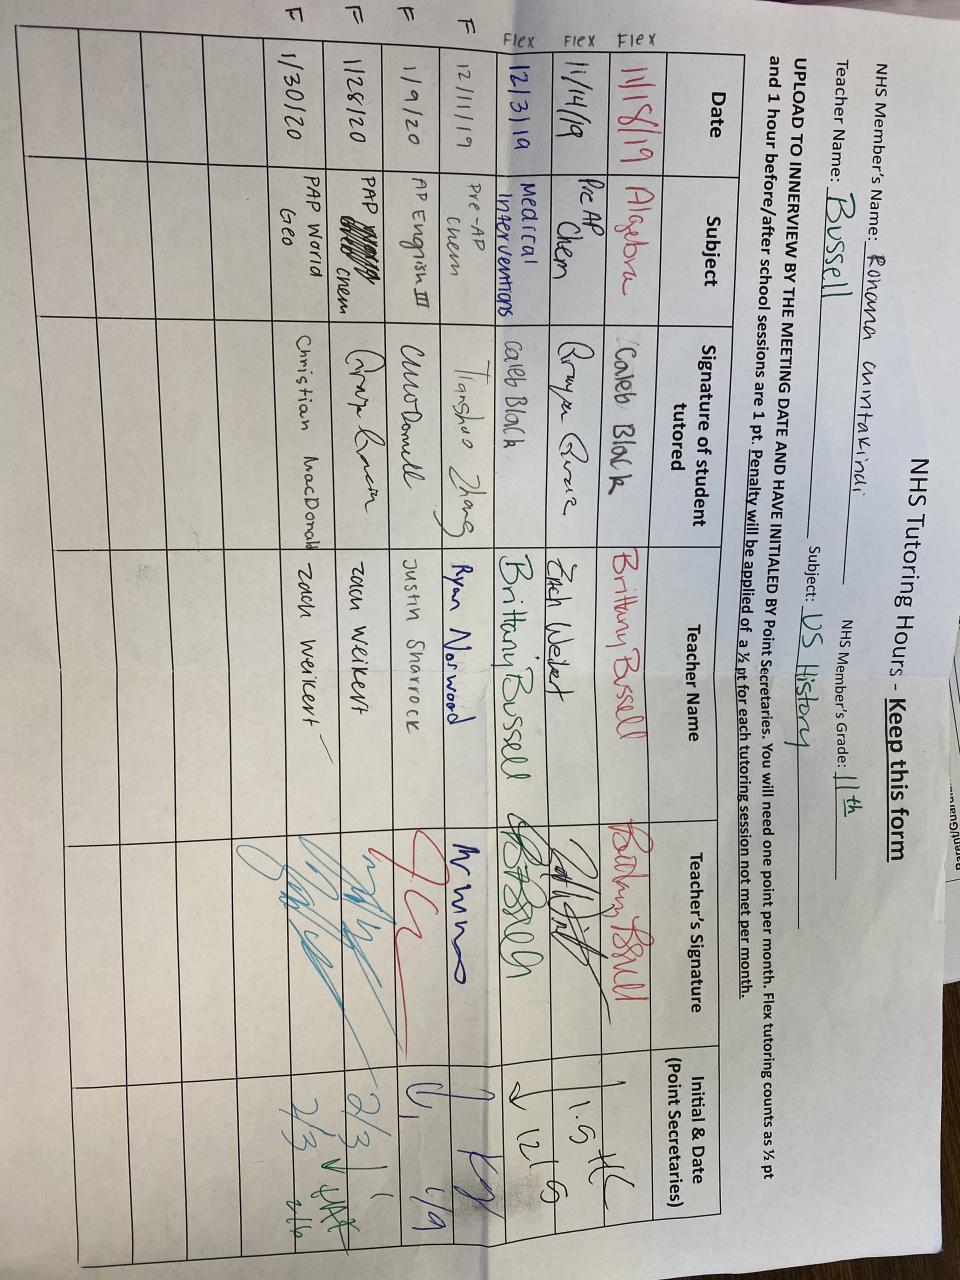 NHS Tutoring Hours - Keep this form
NHS Member's Name: Rohana Chintakindi NHS Member's Grade: 11th
Teacher Name: Bussell Subject: US History
UPLOAD TO INNERVIEW BY THE MEETING DATE AND HAVE INITIALED BY Point Secretaries. You will need one point per month. Flex tutoring counts as ½ pt
and 1 hour before/after school sessions are 1 pt. Penalty will be applied of a ½ pt for each tutoring session not met per month.
Date Subject Signature of student tutored Teacher Name Teacher's Signature Initial & Date (Point Secretaries)
Flex 11/18/19 Algebra Caleb Black Brittany Bussell Brittany Bussell
Flex 11/14/19 Pre AP Chem Zach Weikert 1.5 HC
Flex 12/3/19 Medical Interventions Caleb Black Brittany Bussell 12/5
F 12/11/19 Pre-AP Chem Tianshuo Zhang Ryan Norwood
F 1/9/20 AP English III Justin Sharrock 1/9
F 1/28/20 PAP chem Zach Weikert 2/3
F 1/30/20 PAP World Geo Christian MacDonald Zach Weikert 2/3 2/6